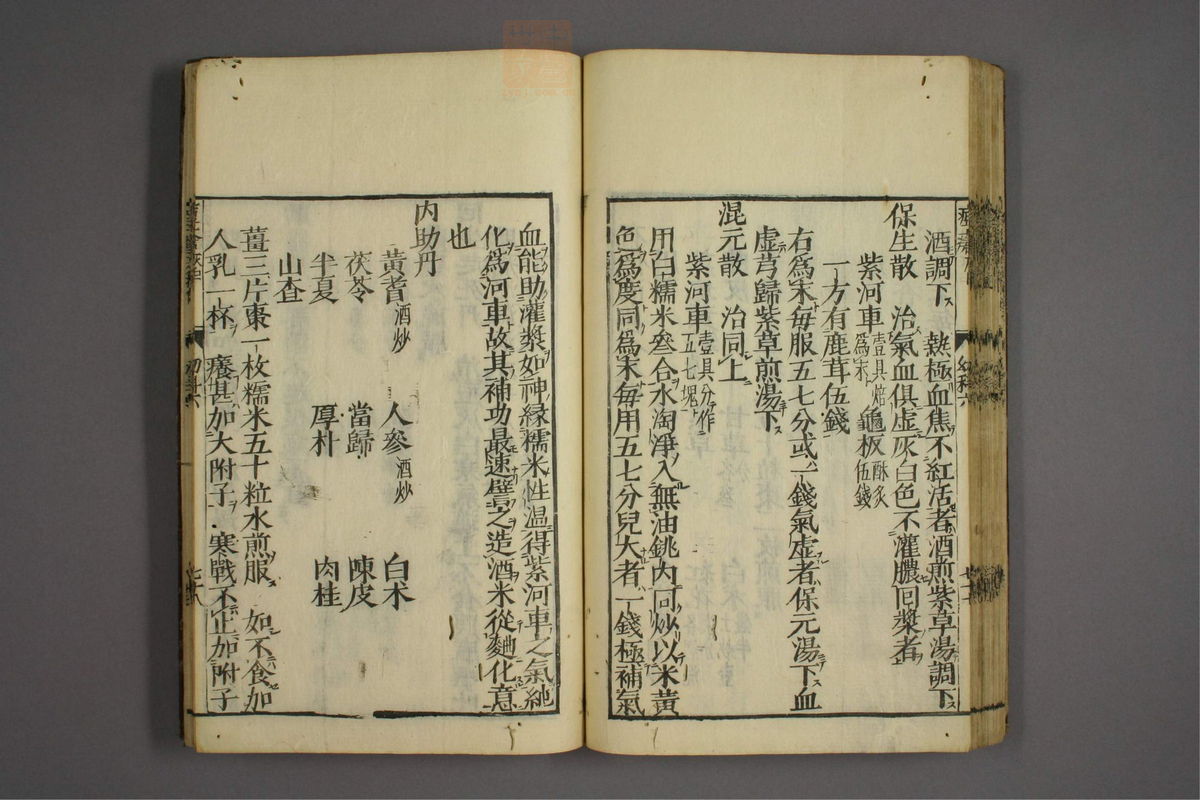 酒調下　熱極血焦不紅活者酒煎紫草湯調下
保生散　治氣血俱虛灰白色不灌膿回漿者
紫河車壹具焙為末龜板酥炙伍錢
一方有鹿茸伍錢
右爲末每服五七分或一錢氣虛者保元湯下血
虛芎歸紫草煎湯下
混元散　治同上
紫河車壹具分作五七塊
用白糯米叁合水淘淨入無油銚內同炒以米黃
色爲度同爲末每用五七分兒大者一錢極補氣
血能助灌漿如神緣糯米性温得紫河車之氣純
化爲河車故其補功最速譬之造酒米從麯化意
也
内助丹
黃耆酒炒　人參酒炒　白术
茯苓　當歸　陳皮
半夏　厚朴　肉桂
山查
薑三片棗一枚糯米五十粒水煎服　如不食加
人乳一杯　癢甚加大附子　寒戰不止加附子